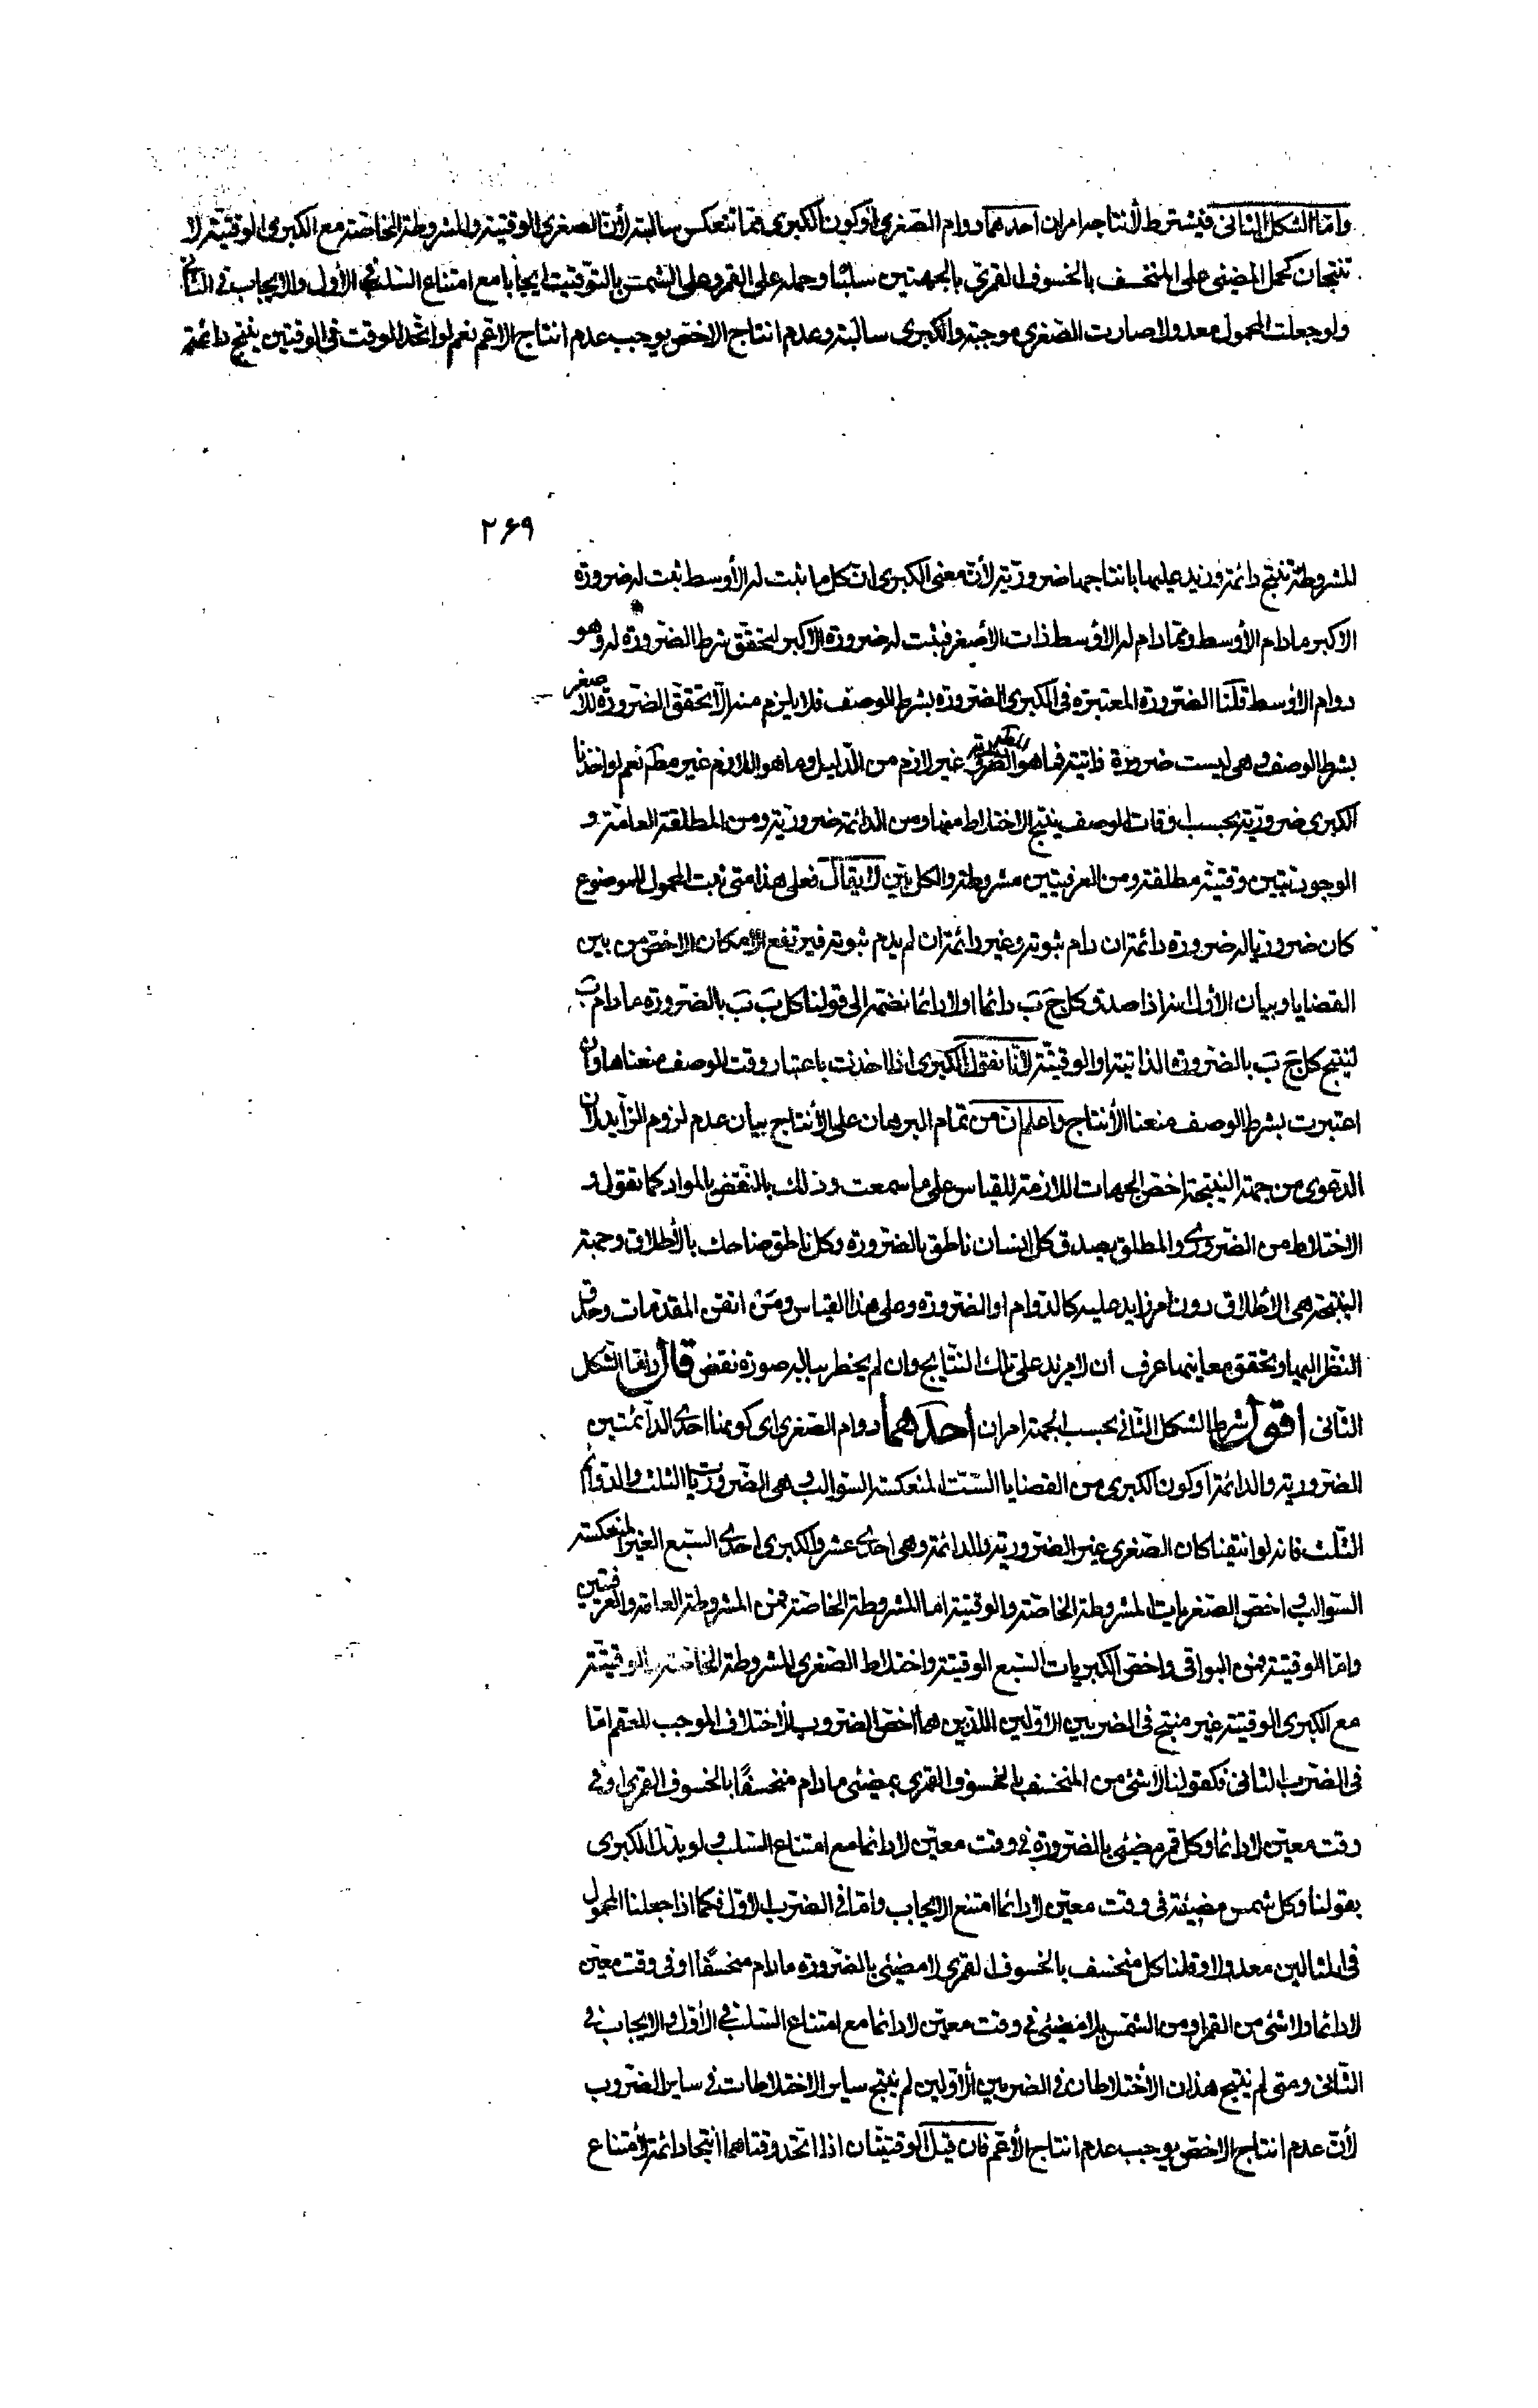 وامّا الشكل الثانى فيشترط لأنتاجه امران احدهما دوام الصّغرى او كون الكبرى ممّا تنعكس سالبته لأنّ الصغرى الوقتيّة والمشروطة الخاصّة مع الكبرى الوقتيّة لا
تنتجان كحمل المضئى على المنخسف بالخسوف القمرىّ بالجهتين سلبًا وحمله على القمر وعلى الشمس بالتّوقيت ايجابا مع امتناع السّلب فى الأول والايجاب فى الثانى
ولو جعلت المحمول معدولا صارت الصّغرى موجبة والكبرى سالبة وعدم انتاج الاخصّ يوجب عدم انتاج الاعمّ نعم لو اتّحد الوقت فى الوقتين ينتج دائمة
۲۶۹
المشروطة تنتج دائمة وزيد عليها بانتاجها ضروريّة لأنّ معنى الكبرى انّ كل ما ثبت له الأوسط ثبت له ضرورة
الاكبر مادام الأوسط وممّا دام له الأوسط ذات الأصغر فيثبت له ضرورة الاكبر لتحقّق شرط الضّرورة له وهو
دوام الاوسط قلنا الضّرورة المعتبرة فى الكبرى الضرورة بشرط الوصف فلا يلزم منه الّا تحقّق الضّرورة للاصغر
بشرط الوصف وهى ليست ضرورة ذاتيّة فما هو المطلوب غير لازم من الدّليل وما هو اللازم غير مط نعم لو اخذنا
الكبرى ضروريّة بحسب اوقات الوصف ينتج الاختلاط منها ومن الدائمة ضروريّة ومن المطلقة العامّة و
الوجوديتين وقتيّة مطلقة ومن العرفيتين مشروطة والكل بيّن لا يقال فعلى هذا متى ثبت المحمول للموضوع
كان ضروريا له ضرورة دائمة ان دام ثبوته وغير دائمة ان لم يدم ثبوته فيرتفع الامكان الاخصّ من بين
القضايا وبيان الأول انه اذا صدق كل جَ بَ دائما اولا دائما نضمّه الى قولنا كل بَ بَ بالضّرورة مادام بَ
لينتج كل جَ بَ بالضّرورة الذاتيّة او الوقتيّة لأنّا نقول الكبرى اذا اخذت باعتبار وقت الوصف منعناها وان
اعتبرت بشرط الوصف منعنا الأنتاج واعلم انّ من تمام البرهان على الأنتاج بيان عدم لزوم الزّايد لأن
الدّعوى من جهة النتيجة اخصّ الجهات اللازمة للقياس على ما سمعت وذلك بالنّقض بالمواد كما نقول فى
الاختلاط من الضّرورى والمطلق يصدق كل انسان ناطق بالضّرورة وكل ناطق ضاحك بالأطلاق وجهة
النتيجة هى الأطلاق دون امر زايد عليه كالدّوام او الضّرورة وعلى هذا القياس ومن اتقن المقدّمات وحدّق
النّظر اليها وتحقّق معاينها عرف ان لا مزيد على تلك النّتايج وان لم يخطر بباله صورة نقض قال وامّا الشكل
الثانى اقول شرط الشكل الثانى بحسب الجهة امران احدهما دوام الصّغرى اى كونها احدى الدائمتين
الضّرورية والدائمة او كون الكبرى من القضايا السّت المنعكسة السّوالب وهى الضّروريات الثلث والدّوائم
الثّلث فانه لو انتفيا كان الصّغرى غير الضّرورية والدائمة وهى احدى عشر والكبرى احدى السّبع الغير المنعكسة
السّوالب واخصّ الصّغريات المشروطة الخاصّة والوقتيّة امّا المشروطة الخاصّة فمن المشروطة العامّة والعرفيتين
وامّا الوقتيّة فمن البواقى واخصّ الكبريات السّبع الوقتيّة واختلاط الصّغرى المشروطة الخاصّة والوقتيّة
مع الكبرى الوقتيّة غير منتج فى الضربين الاوّلين اللذين هما اخصّ الضّروب للأختلاف الموجب للعقم امّا
فى الضّرب الثانى فكقولنا لا شئ من المنخسف بالخسوف القمرى بمضئى مادام منخسفًا بالخسوف القمرى او فى
وقت معيّن لا دائما وكل قمر مضئى بالضّرورة فى وقت معيّن لا دائما مع امتناع السّلب ولو بدّلنا الكبرى
بقولنا وكل شمس مضيئة فى وقت معيّن لا دائما امتنع الايجاب وامّا فى الضّرب الاوّل فكما اذا جعلنا المحمول
فى المثالين معدولا وقلنا كل منخسف بالخسوف القمرى لا مضئى بالضّرورة مادام منخسفًا او فى وقت معيّن
لا دائما ولا شئ من القمر او من الشّمس بلا مضئى فى وقت معيّن لا دائما مع امتناع السّلب فى الأوّل والايجاب فى
الثّانى ومتى لم ينتج هذان الأختلاطان فى الضربين الأوّلين لم ينتج ساير الاختلاطات فى ساير الضّروب
لأنّ عدم انتاج الاخصّ يوجب عدم انتاج الأعمّ فان قيل الوقتيّتان اذا اتّحد وقتاهما انتجا دائمة لأمتناع